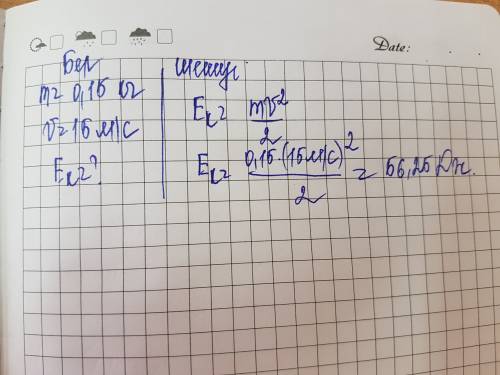 Date:
Бер
m= 0,15 кг
v= 15 м/с
Eк=?
шешуі
Eк= mv²/2
Eк= 0,15·(15м/с)²/2 = 56,25 Дж.